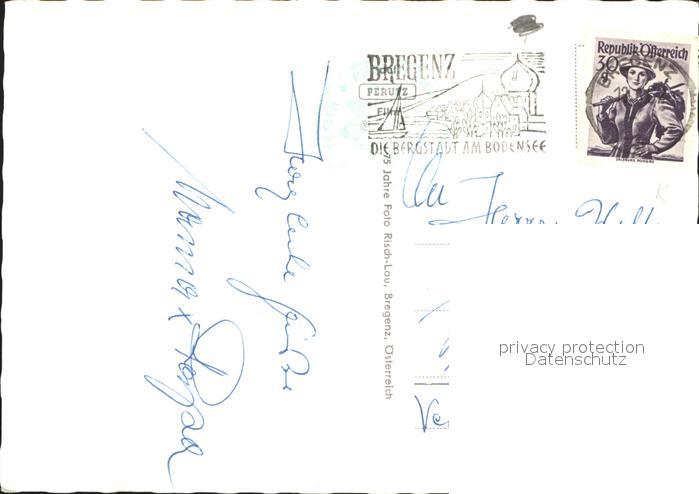 BREGENZ
PERUTZ
FILM
DIE BERGSTADT AM BODENSEE
Republik Österreich
30
BREGENZ
SALZBURG, PONGAU
75 Jahre Foto Risch-Lau, Bregenz, Österreich
Herzliche Grüße
Mama x Papa
An
Herrn
privacy protection
Datenschutz